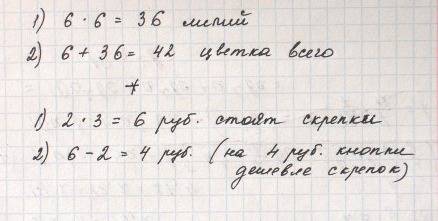 1) 6 · 6 = 36 лилий
2) 6 + 36 = 42 цветка всего
*
1) 2 · 3 = 6 руб. стоят скрепки
2) 6 - 2 = 4 руб. (на 4 руб. кнопки
дешевле скрепок)